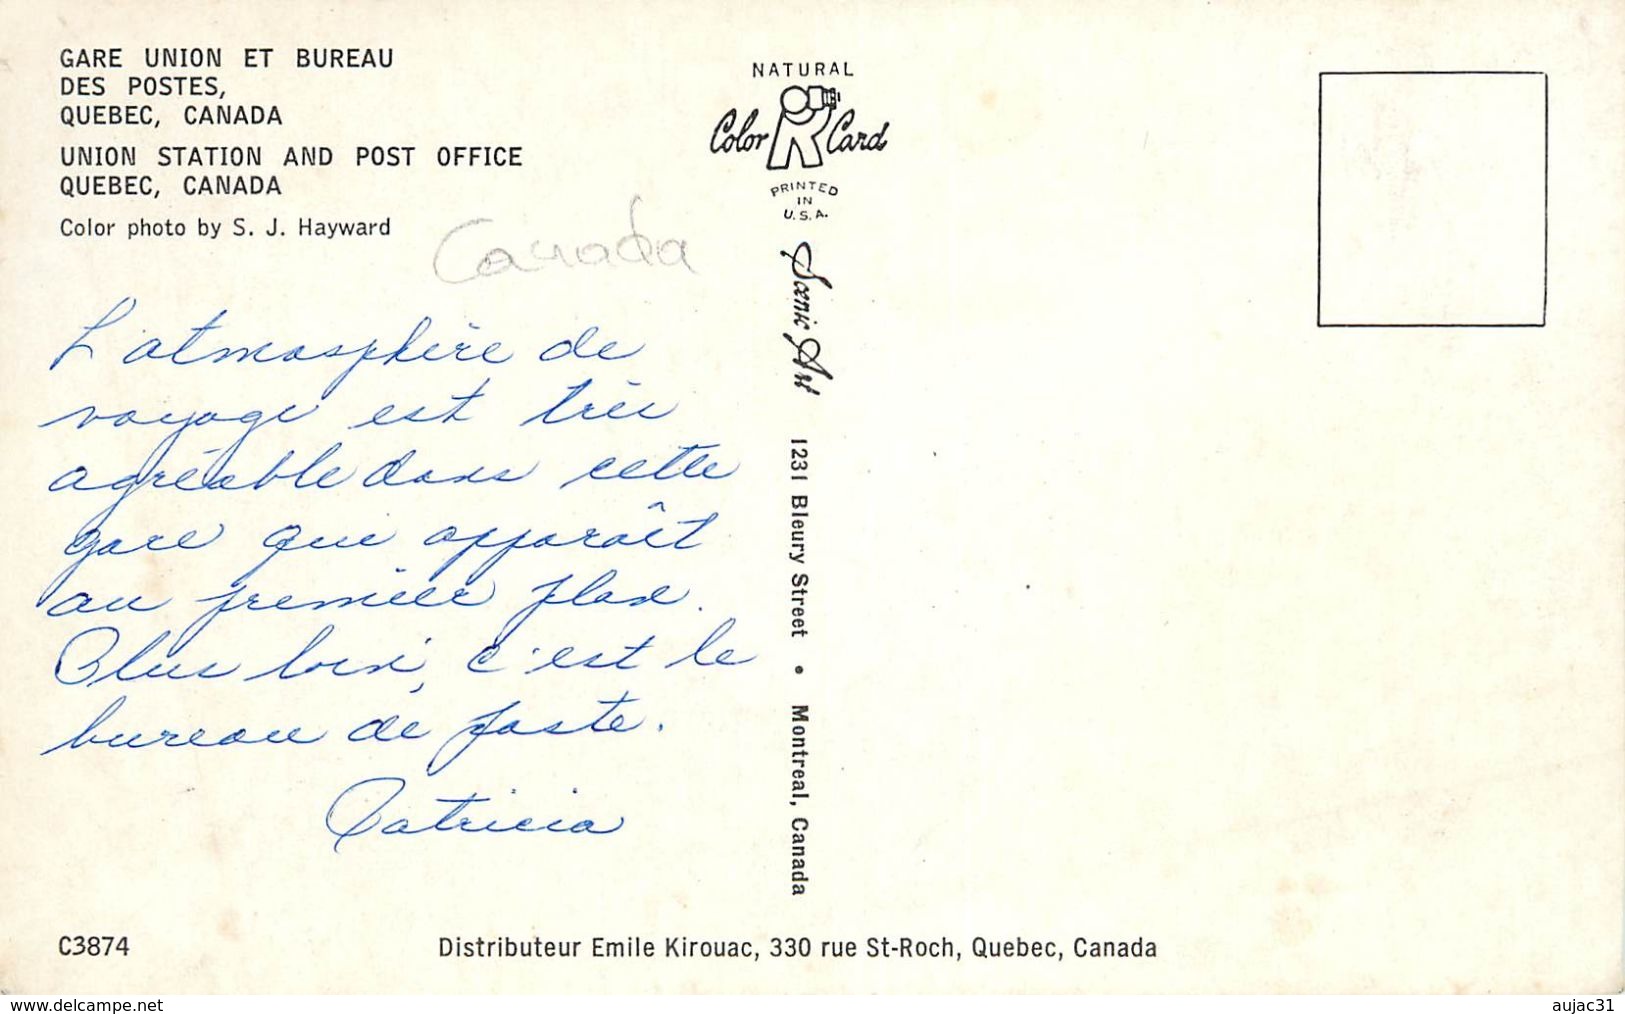 GARE UNION ET BUREAU
DES POSTES,
QUEBEC, CANADA
UNION STATION AND POST OFFICE
QUEBEC, CANADA
Color photo by S. J. Hayward
Canada
L'atmosphère de
voyage est très
agréable dans cette
gare que apparaît
au premier plan.
Plus loin, c'est le
bureau de poste.
Patricia
C3874
NATURAL
Color R Card
PRINTED
IN
U.S.A.
Scenic Art 1231 Bleury Street • Montreal, Canada
Distributeur Emile Kirouac, 330 rue St-Roch, Quebec, Canada
www.delcampe.net
aujac31